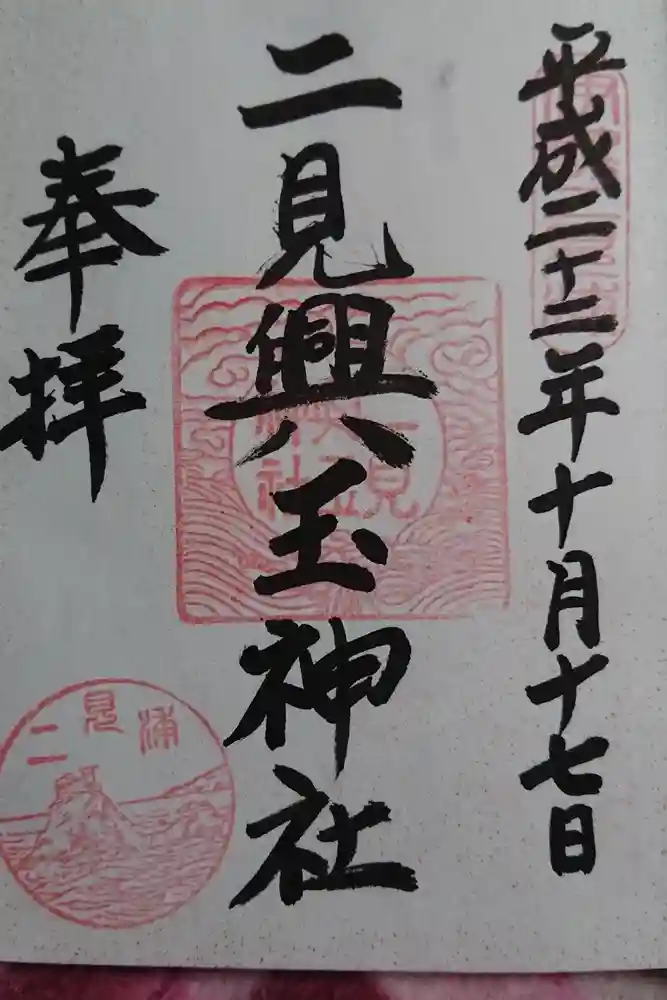 平成二十二年十月十七日
二見興玉神社
奉拝
二見興玉神社
二見浦